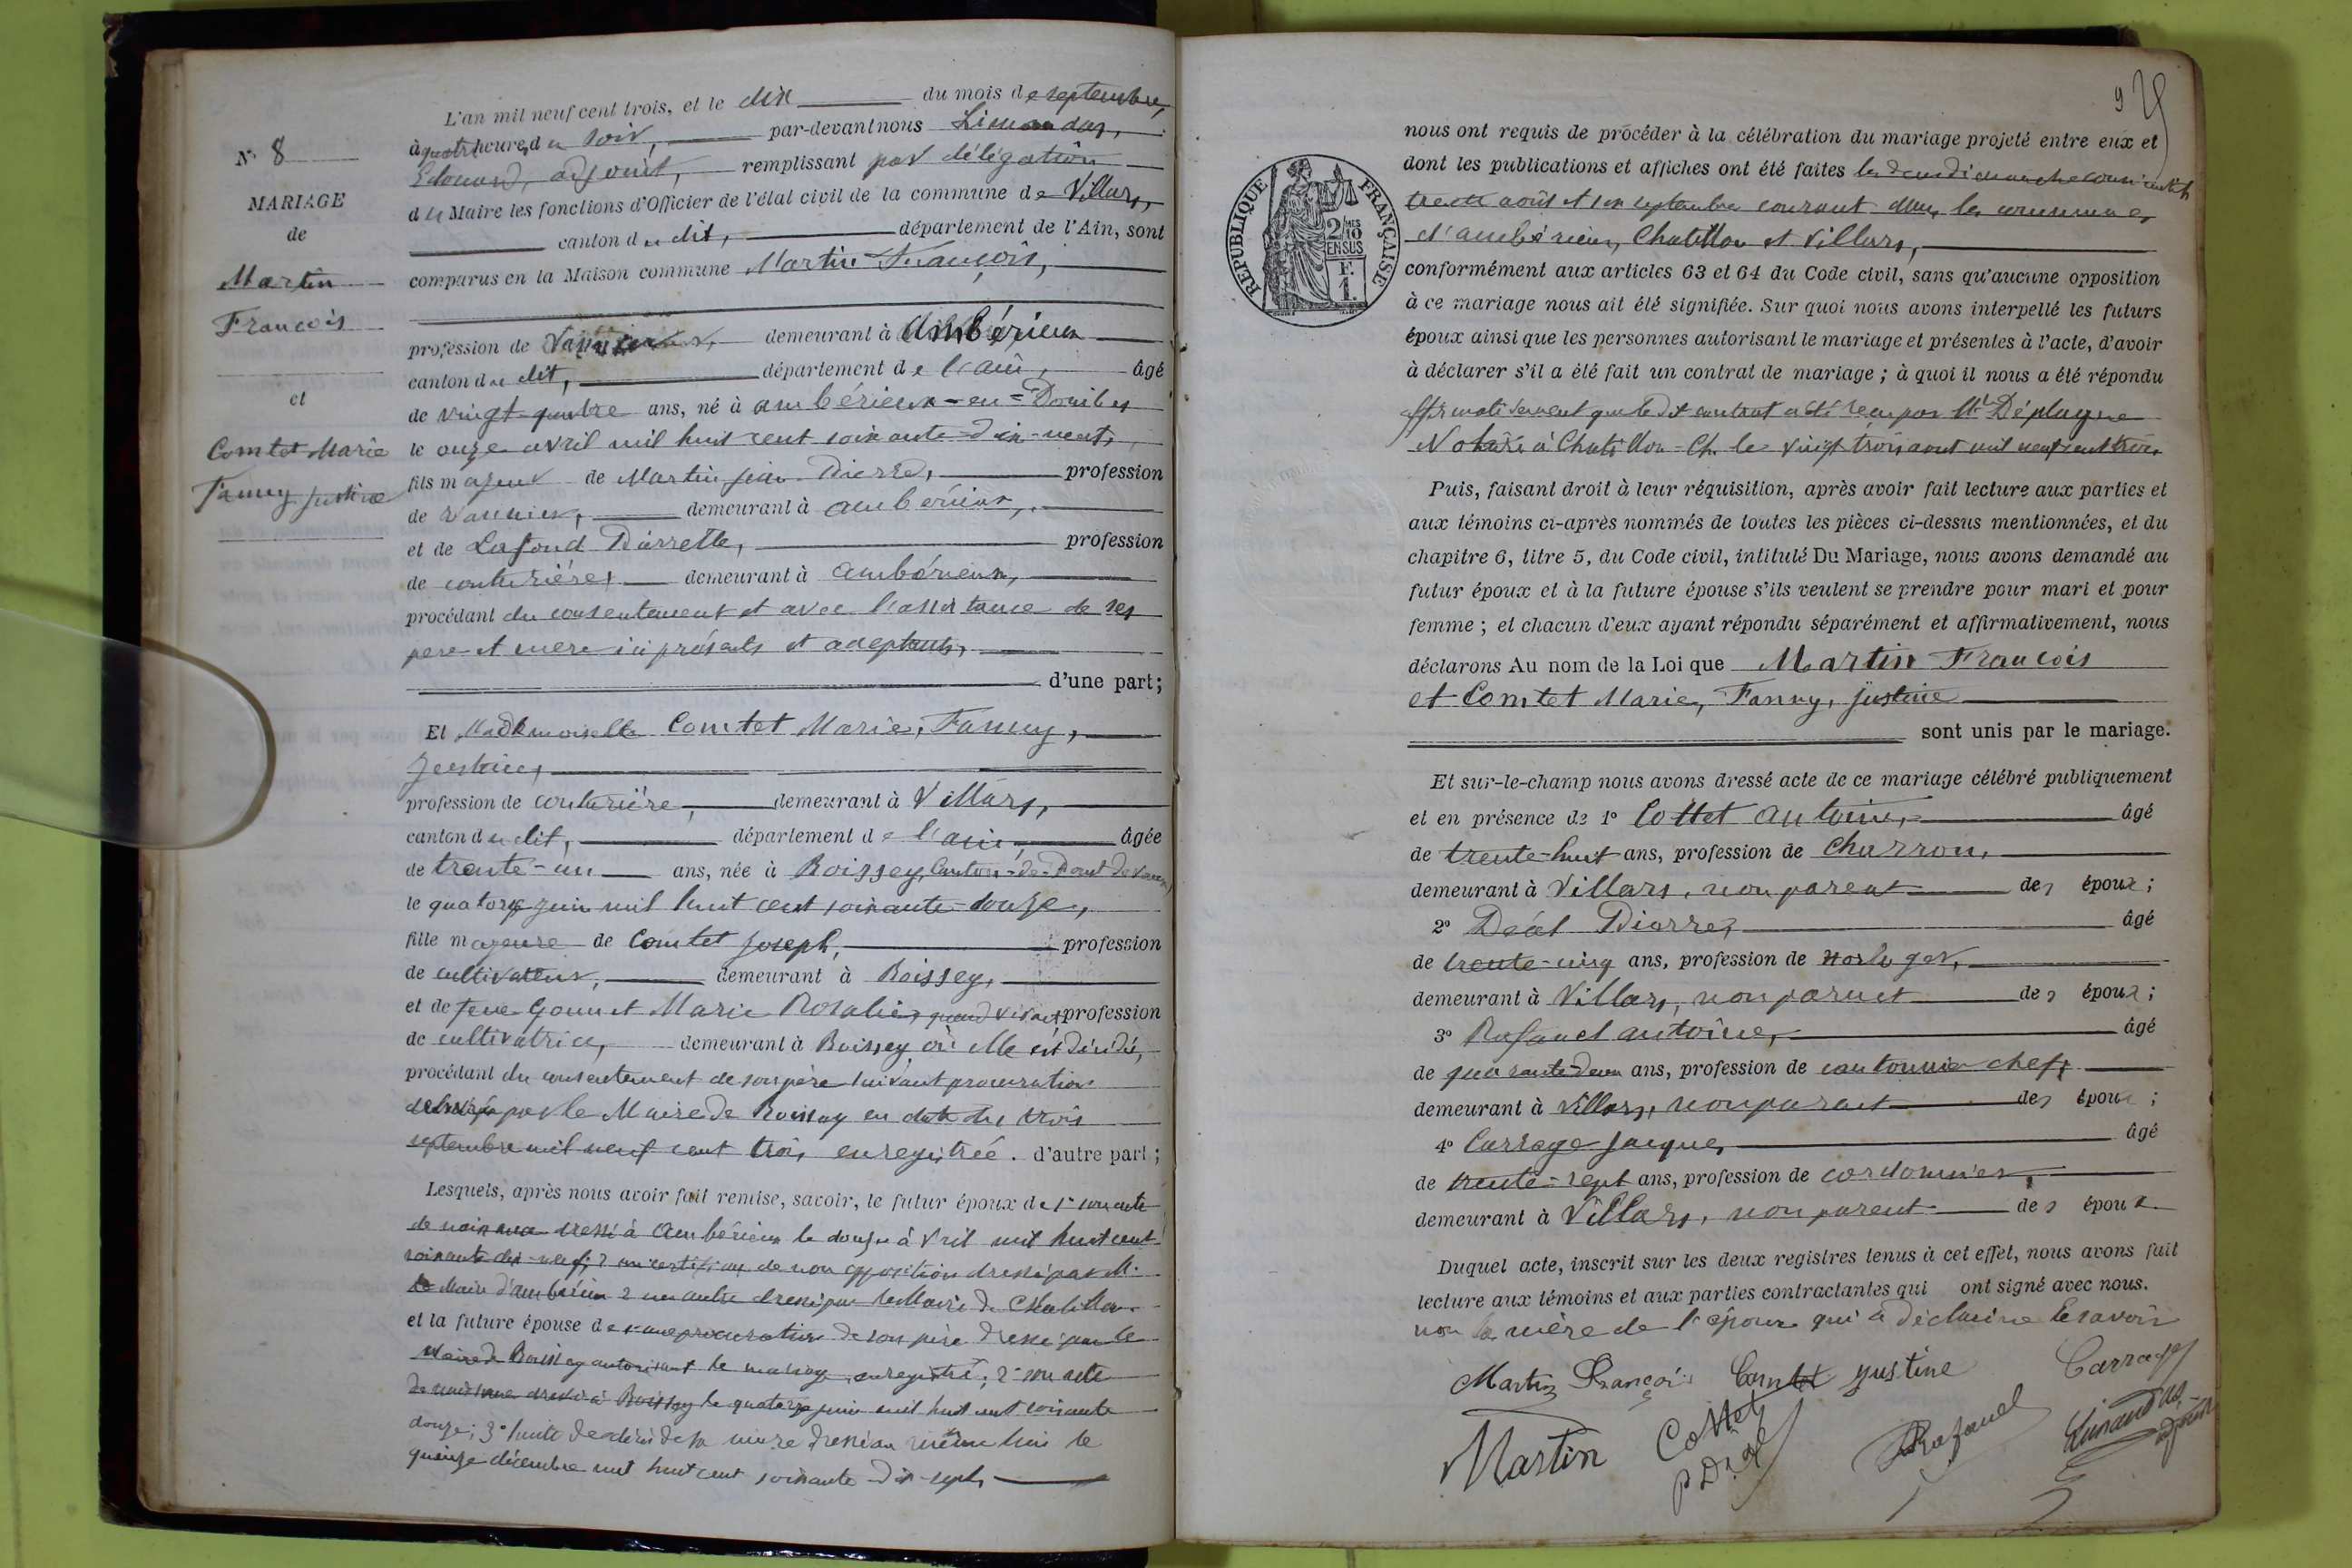 N° 8
MARIAGE
de
Martin
François
et
Comtet Marie
Fanny Justine
L'an mil neuf cent trois, et le dix du mois de septembre,
à quatre heures du soir, par-devant nous Limandas,
Edouard, adjoint, remplissant par délégation
du Maire les fonctions d'Officier de l'état civil de la commune de Villars,
canton du dit, département de l'Ain, sont
comparus en la Maison commune Martin François,
profession de demeurant à Ambérieux
canton du dit, département de l'ain, âgé
de vingt-quatre ans, né à ambérieux-en=Dombes
le onze avril mil huit cent soixante-dix-neuf,
fils majeur de Martin jean Pierre, profession
de vannier, demeurant à ambérieux,
et de Lafond Pierrette, profession
de couturière, demeurant à ambérieux,
procédant du consentement et avec l'assistance de ses
père et mère ici présents et acceptants,
d'une part;
Et Mademoiselle Comtet Marie, Fanny,
Justine,
profession de couturière, demeurant à Villars,
canton du dit, département de l'ain, âgée
de trente-un ans, née à Boissey, Canton-de-Pont de Vaux,
le quatorze juin mil huit cent soixante-douze,
fille majeure de Comtet joseph, profession
de cultivateur, demeurant à Boissey,
et de feue Gonnet Marie Rosalie, quand vivait profession
de cultivatrice, demeurant à Boissey où elle est décédée,
procédant du consentement de son père suivant procuration
délivrée par le Maire de Boissey en date du trois
septembre mil neuf cent trois enregistrée. d'autre part;
Lesquels, après nous avoir fait remise, savoir, le futur époux de 1° son acte
de naissance dressé à Ambérieux le douze avril mil huit cent
soixante dix-neuf; 2 un certificat de non opposition dressé par M.
le Maire d'ambérieux 2 un autre dressé par le Maire de Chatillon
et la future épouse de 1° une procuration de son père dressé par le
Maire de Boissey autorisant le mariage, enregistré; 2° son acte
de naissance dressé à Boissey le quatorze juin mil huit cent soixante
douze; 3° l'acte de décès de sa mère dressé au même lieu le
quinze décembre mil huit cent soixante-dix-sept,
9
nous ont requis de procéder à la célébration du mariage projeté entre eux et
dont les publications et affiches ont été faites les deux dimanches consécutifs
trente août et six septembre courant dans les communes
d'ambérieux, Chatillon et Villars,
RÉPUBLIQUE FRANÇAISE
2/10 EN SUS
F.
1.
conformément aux articles 63 et 64 du Code civil, sans qu'aucune opposition
à ce mariage nous ait été signifiée. Sur quoi nous avons interpellé les futurs
époux ainsi que les personnes autorisant le mariage et présentes à l'acte, d'avoir
à déclarer s'il a été fait un contrat de mariage; à quoi il nous a été répondu
affirmativement que le dit contrat a été reçu par Me Déplagne
Notaire à Chatillon-Ch. le vingt trois aout mil neuf cent trois.
Puis, faisant droit à leur réquisition, après avoir fait lecture aux parties et
aux témoins ci-après nommés de toutes les pièces ci-dessus mentionnées, et du
chapitre 6, titre 5, du Code civil, intitulé Du Mariage, nous avons demandé au
futur époux et à la future épouse s'ils veulent se prendre pour mari et pour
femme; et chacun d'eux ayant répondu séparément et affirmativement, nous
déclarons Au nom de la Loi que Martin François
et Comtet Marie, Fanny, justine
sont unis par le mariage.
Et sur-le-champ nous avons dressé acte de ce mariage célébré publiquement
et en présence de 1° Cottet Antoine, âgé
de trente-huit ans, profession de charron,
demeurant à Villars, non parent des époux;
2° Déal Pierre, âgé
de trente-cinq ans, profession de horloger,
demeurant à Villars, non parent des époux;
3° Rafanel antoine, âgé
de quarante-deux ans, profession de cantonnier chef,
demeurant à Villars, non parent des époux;
4° Carrage Jacques, âgé
de trente-sept ans, profession de cordonnier,
demeurant à Villars, non parent des époux.
Duquel acte, inscrit sur les deux registres tenus à cet effet, nous avons fait
lecture aux témoins et aux parties contractantes qui ont signé avec nous.
non la mère de l'époux qui a déclaré ne le savoir
Martin François Comtet Justine Carrage
Martin Cottet P Déal Rafanel Limandas adjoint